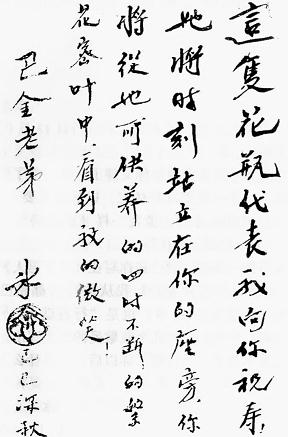 這隻花瓶代表我向你祝寿，
她將时刻站立在你的座旁，你
將從她所供养的四时不断的繁
花密叶中，看到我的微笑！
巴金老弟
冰心 己巳深秋